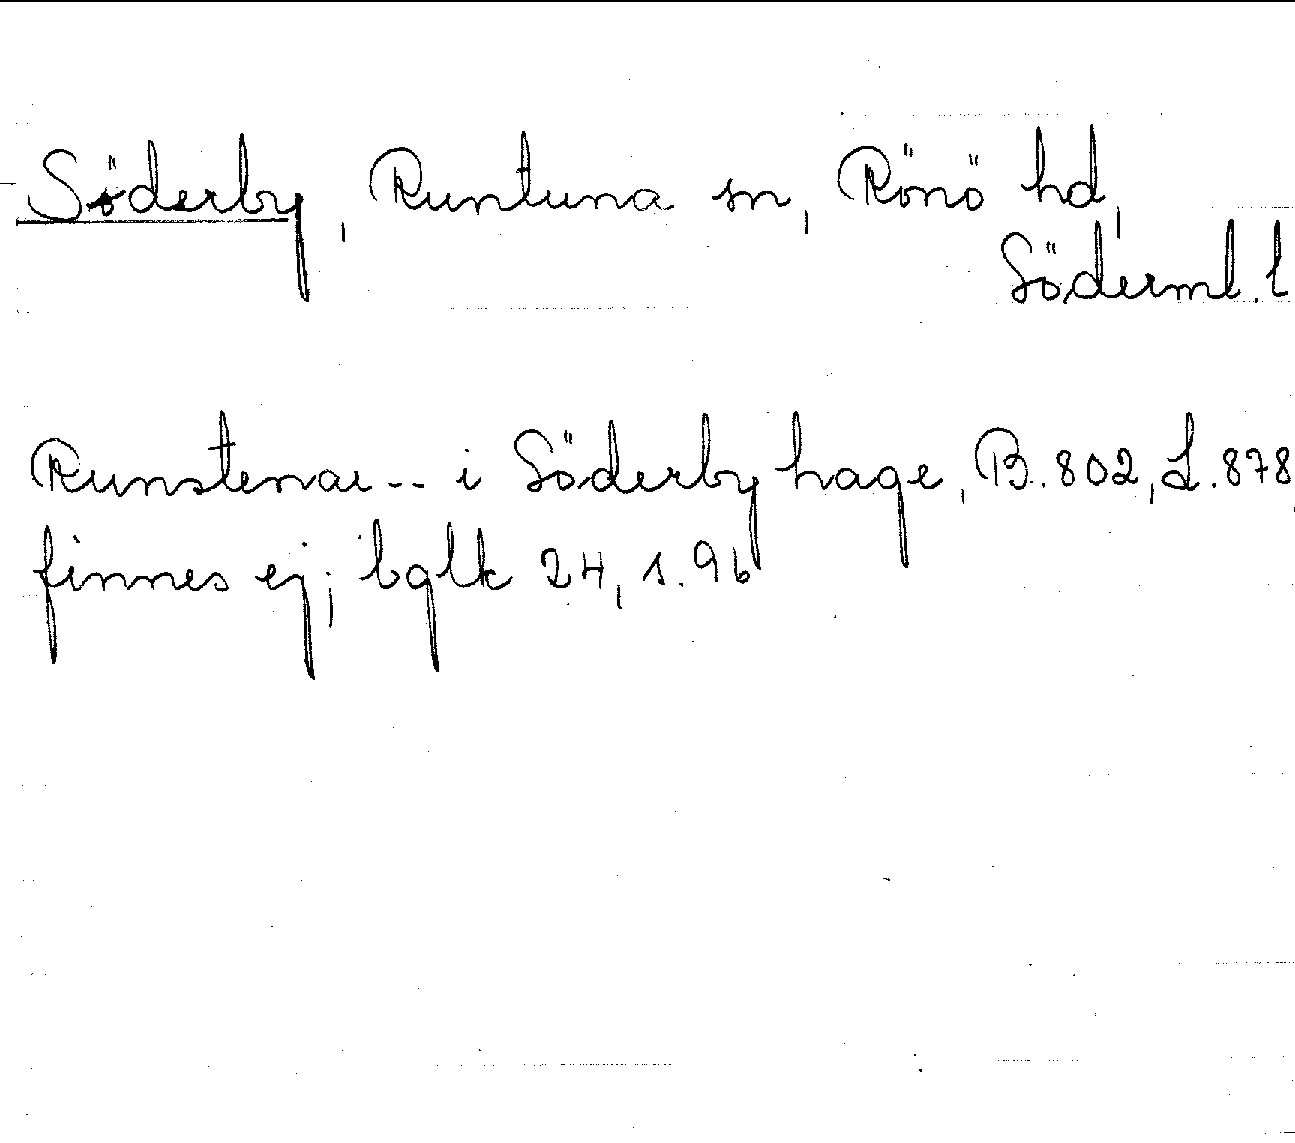 Söderby, Runtuna sn, Rönö hd,
Söderml. l
Runstenar -- i Söderby hage, B. 802, L. 878
finnes ej; bglk 24, s. 96